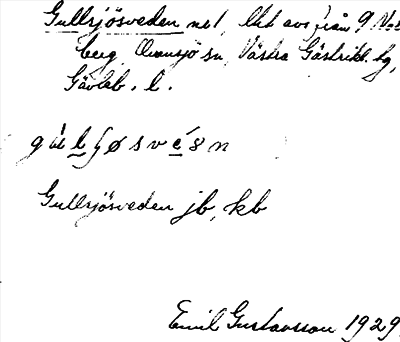 Gullsjösveden no1, litet avs från 9 Nor
berg, Ovansjö sn, Västra Gästrikl. tg,
Gävleb. l.
gúlʃøsvésn
Gullsjösveden jb, kb
Emil Gustavsson 1929